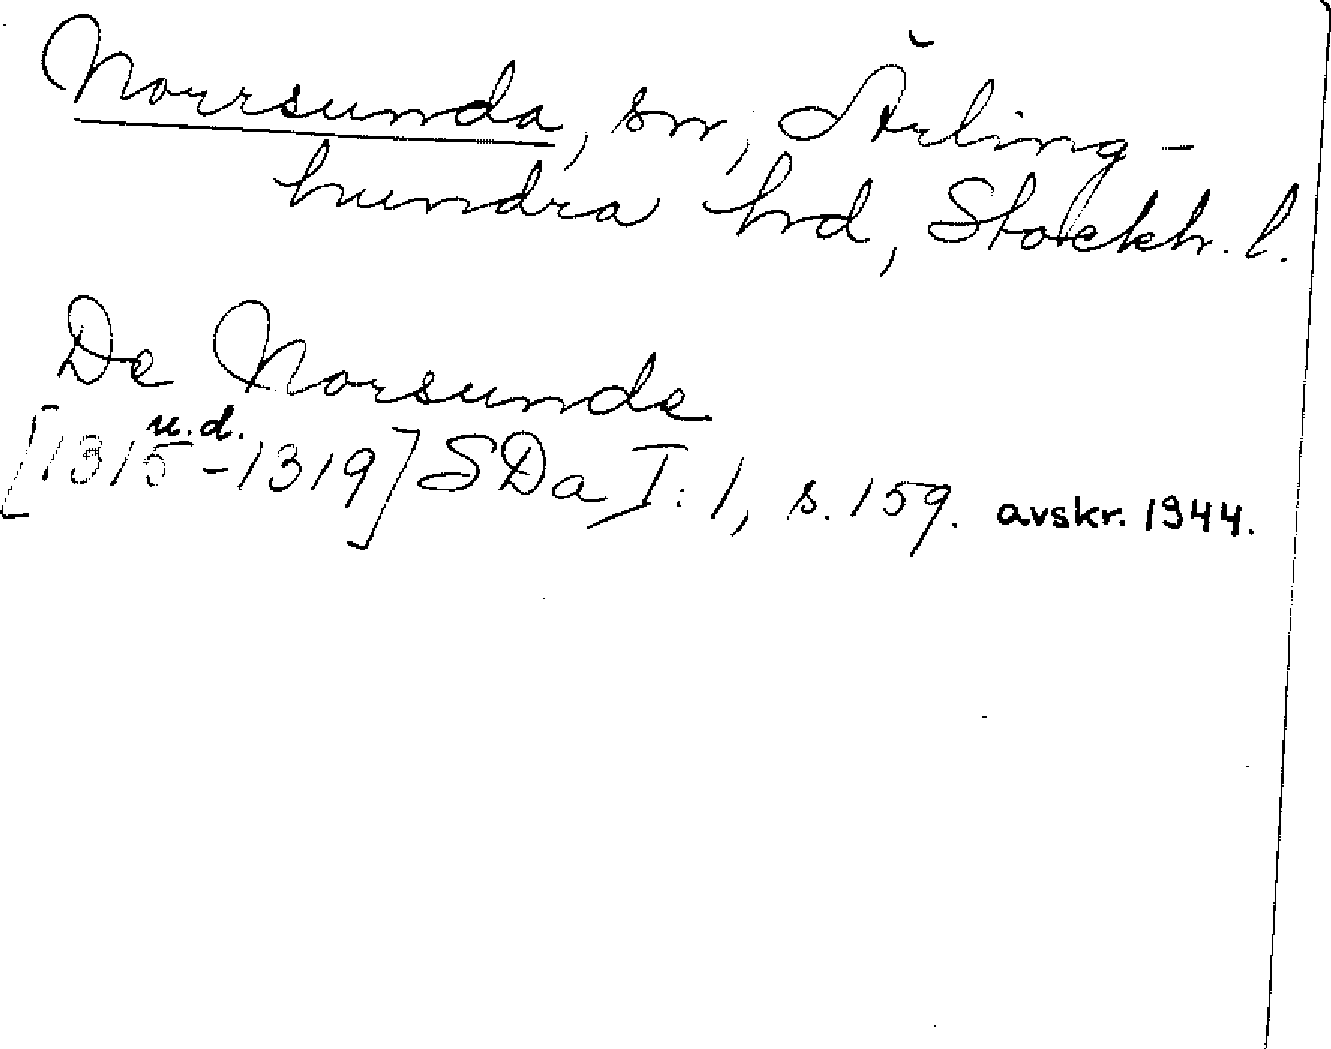 Norrsunda, sn, Ärling-
hundra hrd, Stockh. l.
De Norsunde
u.d.
[1315-1319] SDa I:1, s. 159. avskr. 1944.